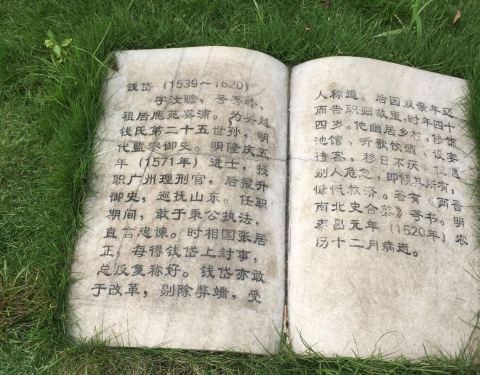 钱岱（1539～1620）
字汝瞻，号秀峰，
祖居鹿苑奚浦。为吴越
钱氏第二十五世孙，明
代监察御史。明隆庆五
年（1571年）进士，授
职广州理刑官，后擢升
御史，巡抚山东。任职
期间，敢于秉公执法，
直言忠谏。时相国张居
正，每得钱岱上封事，
总反复称好。钱岱亦敢
于改革，剔除弊端，受
人称道。后因双亲年迈
而告职归故里，时年四十
四岁。他幽居乡村，修饰
池馆，听歌饮酒，设宴
待客，移日不厌。但遇
别人危急，即倾其所有，
慷慨救济。著有《两晋
南北史合纂》等书。明
泰昌元年（1620年）农
历十二月病逝。